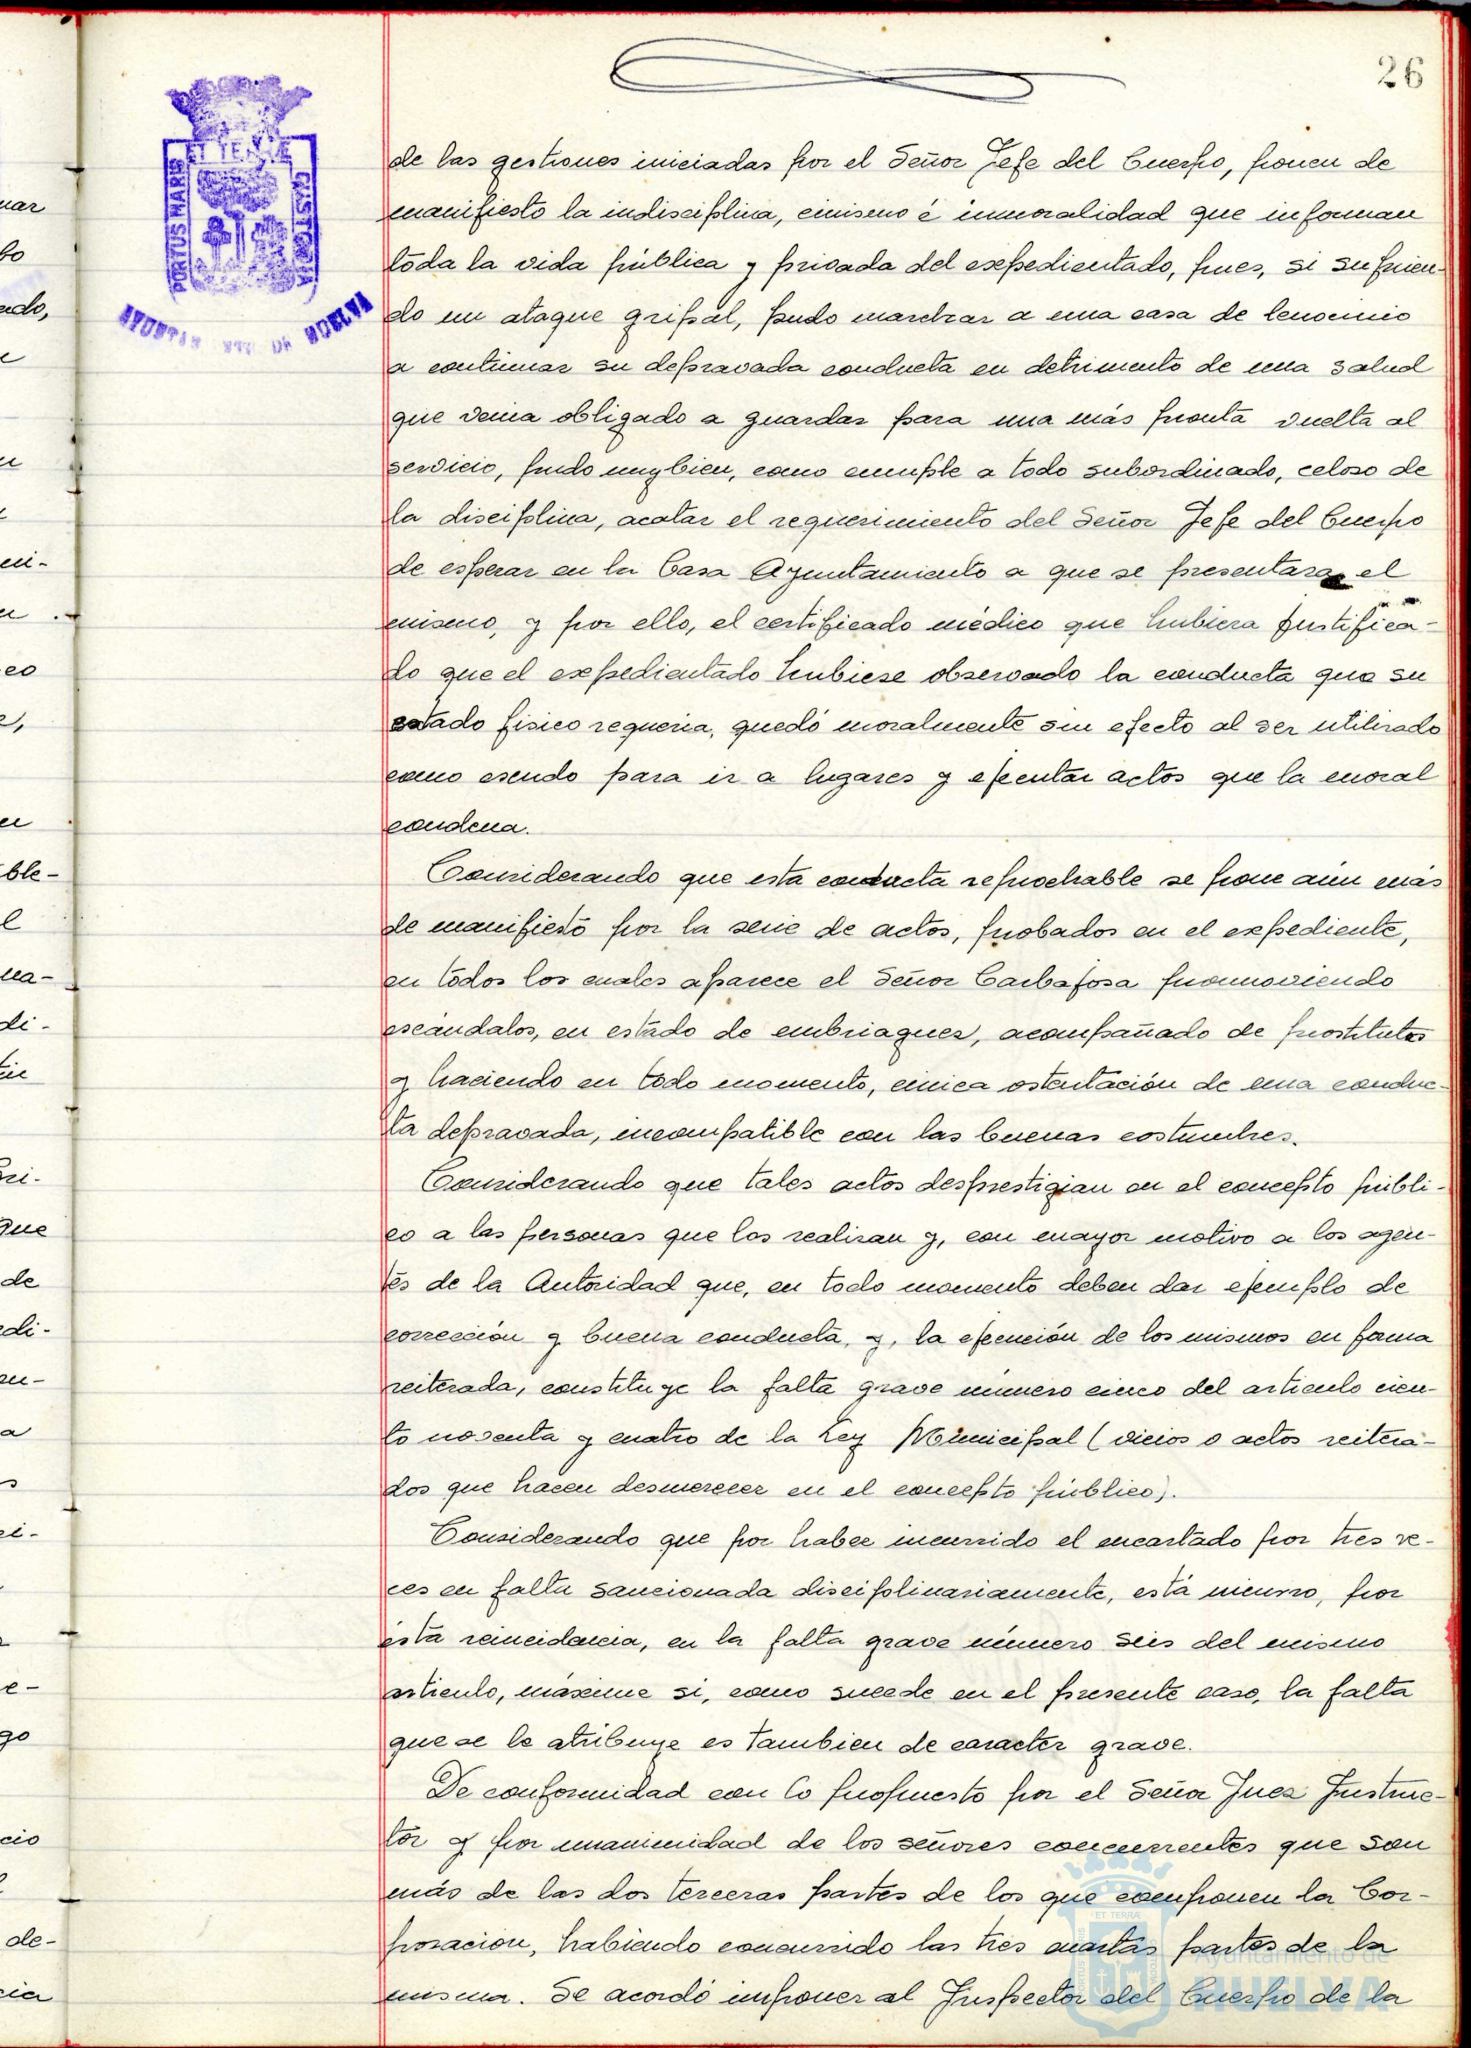 26
PORTUS MARIS
ET TERRÆ
CUSTODIA
AYUNTAMIENTO DE HUELVA
de las gestiones iniciadas por el Señor Jefe del Cuerpo, ponen de
manifiesto la indisciplina, cinismo é inmoralidad que informan
toda la vida pública y privada del expedientado, pues, si sufrien-
do un ataque gripal, pudo marchar a una casa de lenocinio
a continuar su depravada conducta en detrimento de una salud
que venia obligado a guardar para una más pronta vuelta al
servicio, pudo muy bien, como cumple a todo subordinado, celoso de
la disciplina, acatar el requerimiento del Señor Jefe del Cuerpo
de esperar en la Casa Ayuntamiento a que se presentara el
mismo, y por ello, el certificado médico que hubiera justifica-
do que el expedientado hubiese observado la conducta que su
estado fisico requeria, quedó moralmente sin efecto al ser utilizado
como escudo para ir a lugares y ejecutar actos que la moral
condena.
Considerando que esta conducta reprochable se pone aún más
de manifiesto por la serie de actos, probados en el expediente,
en todos los cuales aparece el Señor Carbajosa promoviendo
escándalos, en estado de embriaguez, acompañado de prostitutas
y haciendo en todo momento, cinica ostentación de una conduc-
ta depravada, incompatible con las buenas costumbres.
Considerando que tales actos desprestigian en el concepto públi-
co a las personas que los realizan y, con mayor motivo a los agen-
tes de la Autoridad que, en todo momento deben dar ejemplo de
corrección y buena conducta, y, la ejecución de los mismos en forma
reiterada, constituye la falta grave número cinco del articulo cien-
to noventa y cuatro de la Ley Municipal (vicios o actos reitera-
dos que hacen desmerecer en el concepto público).
Considerando que por haber incurrido el encartado por tres ve-
ces en falta sancionada disciplinariamente, está incurso, por
ésta reincidencia, en la falta grave número seis del mismo
articulo, máxime si, como sucede en el presente caso, la falta
que se le atribuye es tambien de caracter grave.
De conformidad con lo propuesto por el Señor Juez Instruc-
tor y por unanimidad de los señores concurrentes que son
más de las dos terceras partes de los que componen la Cor-
poracion, habiendo concurrido las tres cuartas partes de la
misma. Se acordó imponer al Inspector del Cuerpo de la
ET TERRA
Ayuntamiento de
HUELVA